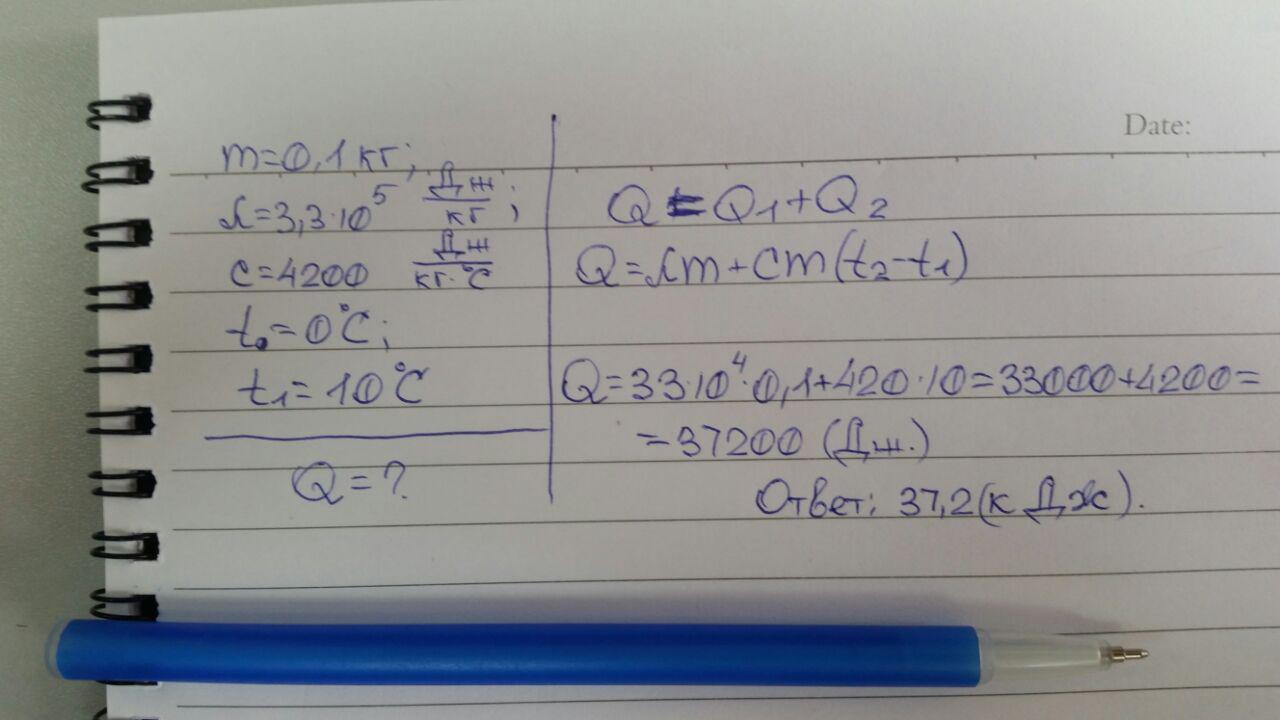 Date:
m=0,1 кг;
λ=3,3·10⁵ Дж/кг;
c=4200 Дж/кг·°C
t₀=0°C;
t₁=10°C
Q=?
Q=Q₁+Q₂
Q=λm+cm(t₂-t₁)
Q=33·10⁴·0,1+420·10=33000+4200=
=37200 (Дж.)
Ответ: 37,2(к Дж).